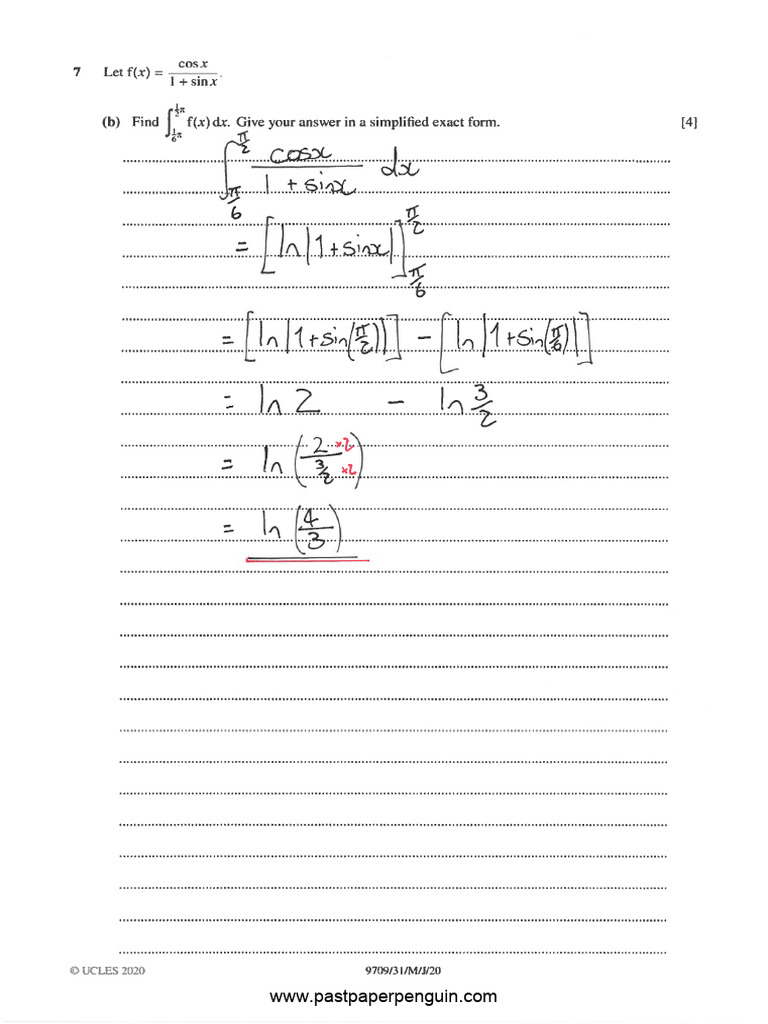 7 Let f(x) = cos x / (1 + sin x).
(b) Find ∫_{1/6 π}^{1/2 π} f(x) dx. Give your answer in a simplified exact form. [4]
∫_{π/6}^{π/2} cosx / (1 + sinx) dx
= [ln|1+sinx|]_{π/6}^{π/2}
= [ln|1+sin(π/2)|] − [ln|1+sin(π/6)|]
= ln 2 − ln 3/2
= ln(2 ×2 / 3/2 ×2)
= ln(4/3)
© UCLES 2020 9709/31/M/J/20
www.pastpaperpenguin.com